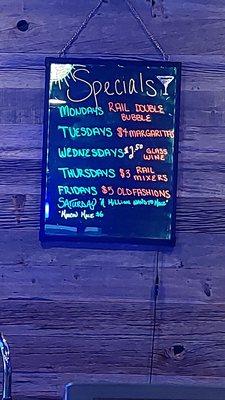 Specials
MONDAYS RAIL DOUBLE
BUBBLE
TUESDAYS $4 MARGARITAS
WEDNESDAYS $2.50 GLASS
WINE
THURSDAYS $3 RAIL
MIXERS
FRIDAYS $5 OLD FASHIONS
SATURDAY "A MILLION
MOSCOW MULE $6